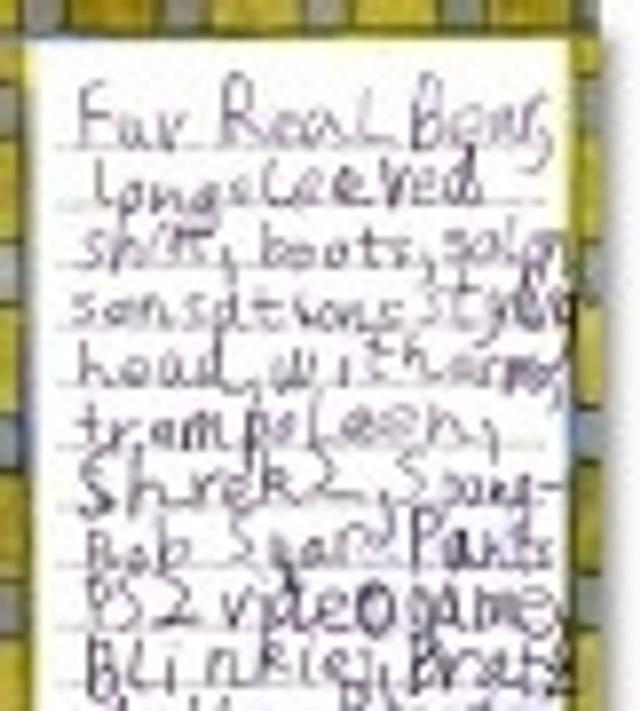 Fur Real Bear,
Longsleeved
shirt, boots, salon
sensations styling
head, with arms,
trampoleen,
Shrek 2, Spong-
Bob Sqare Pants
PS2 videogame,
BLinkie, Bratz